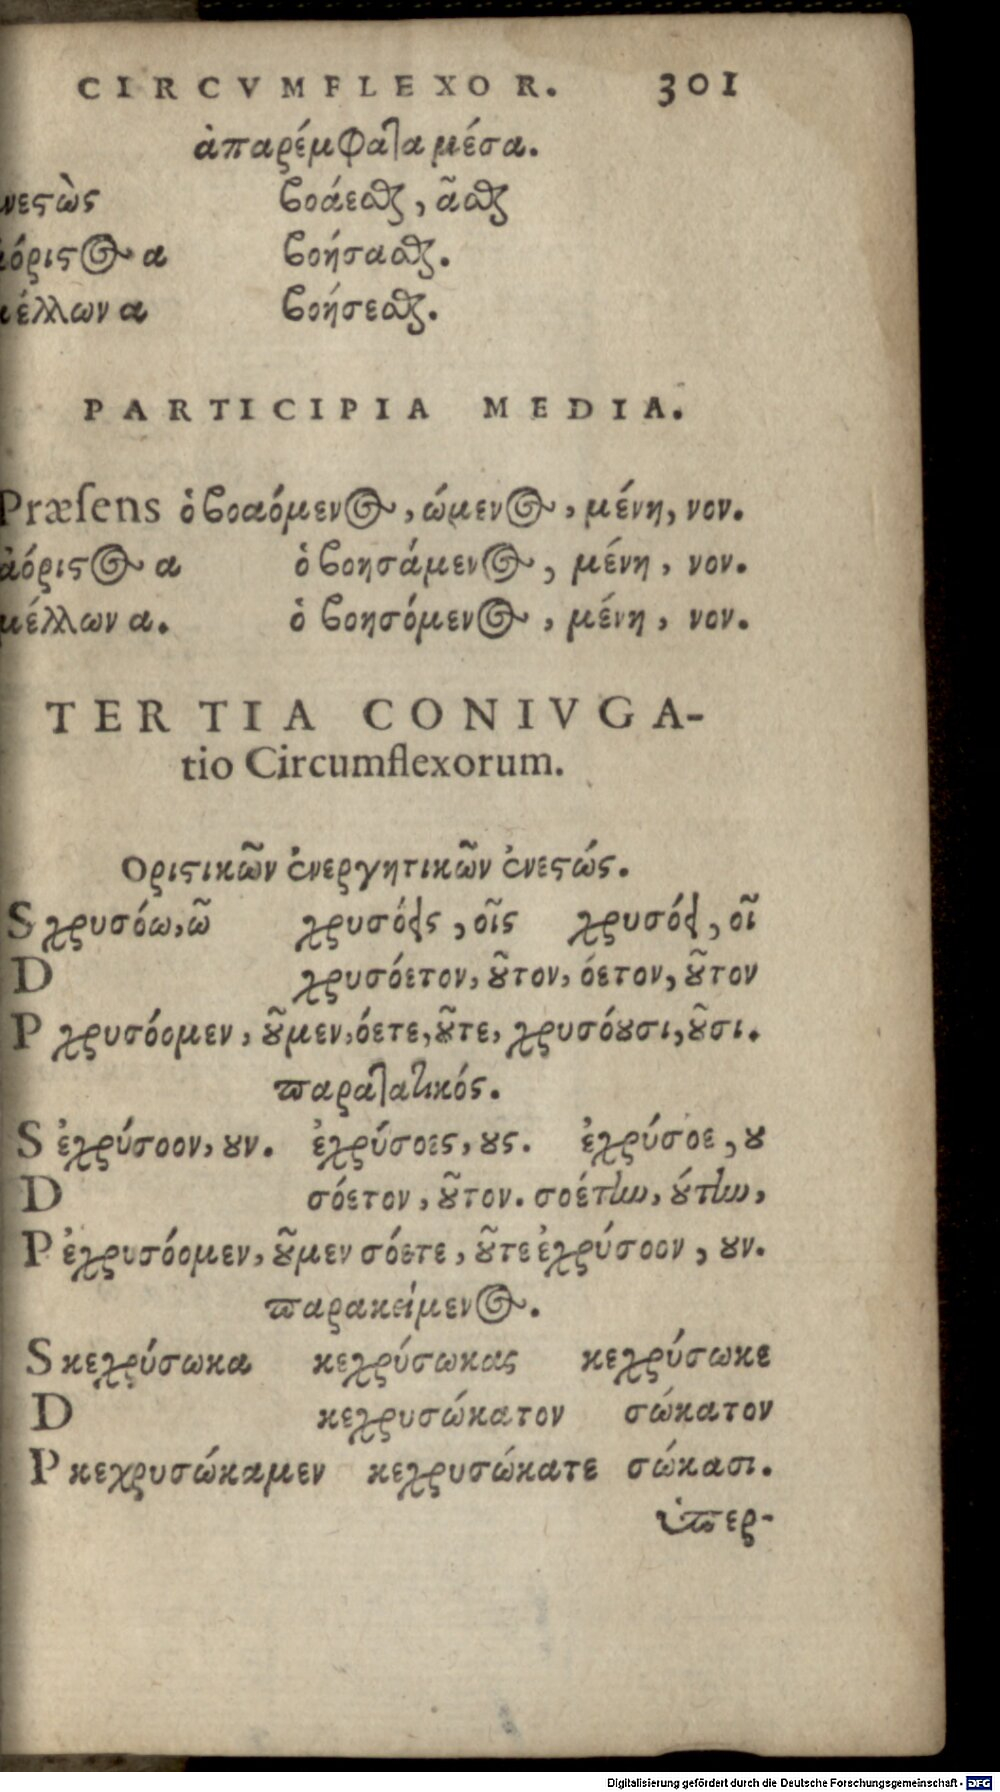 CIRCVMFLEXOR. 301
ἀπαρέμφατα μέσα.
νεϛὼς βοάεσθαι, ᾶσθαι
ἀόριϛος α βοήσασθαι.
μέλλων α βοήσεσθαι.
PARTICIPIA MEDIA.
Præſens ὁ βοαόμενος, ώμενος, μένη, νον.
ἀόριϛος α ὁ βοησάμενος, μένη, νον.
μέλλων α. ὁ βοησόμενος, μένη, νον.
TERTIA CONIVGA-
tio Circumflexorum.
Οριϛικῶν ἐνεργητικῶν ἐνεϛώς.
S χρυσόω, ῶ χρυσόεις, οῖς χρυσόει, οῖ
D χρυσόετον, ȣ͂τον, όετον, ȣ͂τον
P χρυσόομεν, ȣ͂μεν, όετε, ȣ͂τε, χρυσόȣσι, ȣ͂σι.
παρατατικός.
S ἐχρύσοον, ȣν. ἐχρύσοες, ȣς. ἐχρύσοε, ȣ
D σόετον, ȣ͂τον. σοέτην, ȣ́την,
P ἐχρυσόομεν, ȣ͂μεν σόετε, ȣ͂τε ἐχρύσοον, ȣν.
παρακείμενος.
S κεχρύσωκα κεχρύσωκας κεχρύσωκε
D κεχρυσώκατον σώκατον
P κεχρυσώκαμεν κεχρυσώκατε σώκασι.
ὑπερ-
Digitalisierung gefördert durch die Deutsche Forschungsgemeinschaft - DFG